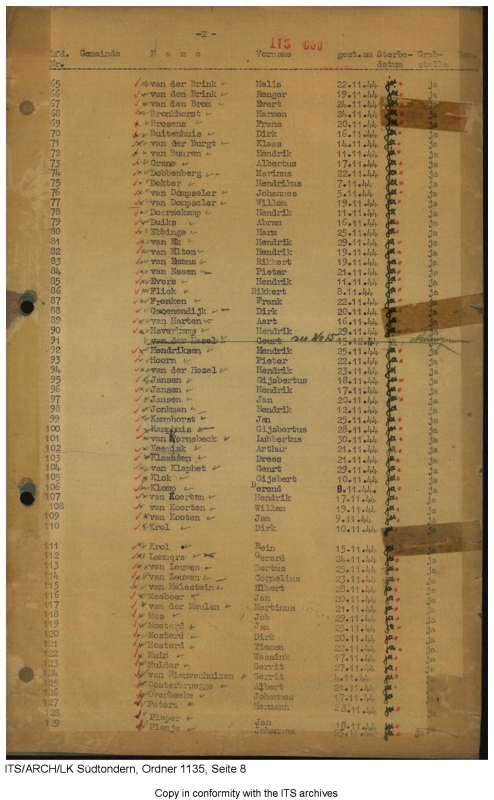 -2-
ITS 068
Lfd. Gemeinde Name Vorname gest.am Sterbe- Grab- Bem.
Nr. datum stelle
65 van der Brink Malis 22.11.44 ja
66 van den Brink Renger 19.11.44 ja
67 van den Brom Evert 24.11.44 ja
68 Bronkhorst Harmen 24.11.44 ja
69 Brozens Frans 20.11.44 ja
70 Buitenhuis Dirk 16.11.44 ja
71 van der Burgt Klaas 14.11.44 ja
72 van Buuren Hendrik 11.11.44 ja
73 Crane Albertus 17.11.44 ja
74 Dobbenberg Marinus 22.11.44 ja
75 Dokter Hendrikus 7.11.44 ja
76 van Dompseler Johannes 5.11.44 ja
77 van Dompseler Willem 19.11.44 ja
78 Doornekamp Hendrik 11.11.44 ja
79 Duiks Abrom 16.11.44 ja
80 Ebbinge Harm 25.11.44 ja
81 van Ek Hendrik 29.11.44 ja
82 van Elten Hendrik 19.11.44 ja
83 van Essons Rikkert 19.11.44 ja
84 van Essen Pieter 21.11.44 ja
85 Evers Hendrik 11.11.44 ja
86 Flick Rikkert 8.11.44 ja
87 Franken Frank 22.11.44 ja
88 Groenendijk Dirk 20.11.44 ja
89 van Harten Aart 16.11.44 ja
90 Haverkamp Hendrik 29.11.44 ja
91 van der Hazel Geurt see No 15 15.12.44
92 Hendriksen Hendrik 25.11.44 ja
93 Hoorn Pieter 22.11.44 ja
94 van der Hozel Hendrik 23.11.44 ja
95 Jansen Gijsbertus 18.11.44 ja
96 Jansen Hendrik 17.11.44 ja
97 Jansen Jan 20.11.44 ja
98 Jonkman Hendrik 12.11.44 ja
99 Kamphorst Jan 25.11.44 ja
100 Kamphuis Gijsbertus 28.11.44 ja
101 van Kernebeck Lubbertus 30.11.44 ja
102 Keenink Arthur 21.11.44 ja
103 Klaassen Drees 21.11.44 ja
104 van Klaphet Geurt 29.11.44 ja
105 Klok Gijsbert 10.11.44 ja
106 Klomp Berend 8.11.44 ja
107 van Koerten Hendrik 17.11.44 ja
108 van Koorten Willem 19.11.44 ja
109 van Kooten Jan 9.11.44 ja
110 Krol Dirk 10.11.44 ja
111 Krol Rein 15.11.44 ja
112 Gerard 24.11.44 ja
113 van Leuwen Bertus 25.11.44 ja
114 van Leuwen Cornelius 23.11.44 ja
115 van Malestein Elbert 28.11.44 ja
116 Mesboer Jan 20.11.44 ja
117 van der Meulen Martinus 21.11.44 ja
118 Mos Job 29.11.44 ja
119 Mosterd Jan 23.11.44 ja
120 Mosterd Dirk 20.11.44 ja
121 Mosterd Tiemen 22.11.44 ja
122 Muin Wassiuk 17.11.44 ja
123 Mulder Gerrit 27.11.44 ja
124 van Nieuwenhuizen Gerrit 4.11.44 ja
125 Oosterbruegge Albert 21.11.44 ja
126 Overbeeke Johannes 17.11.44 ja
127 Peters Hermann 28.11.44 ja
128 Pieper Jan 18.11.44 ja
129 Johannes 25.11.44 ja
ITS/ARCH/LK Südtondern, Ordner 1135, Seite 8
Copy in conformity with the ITS archives